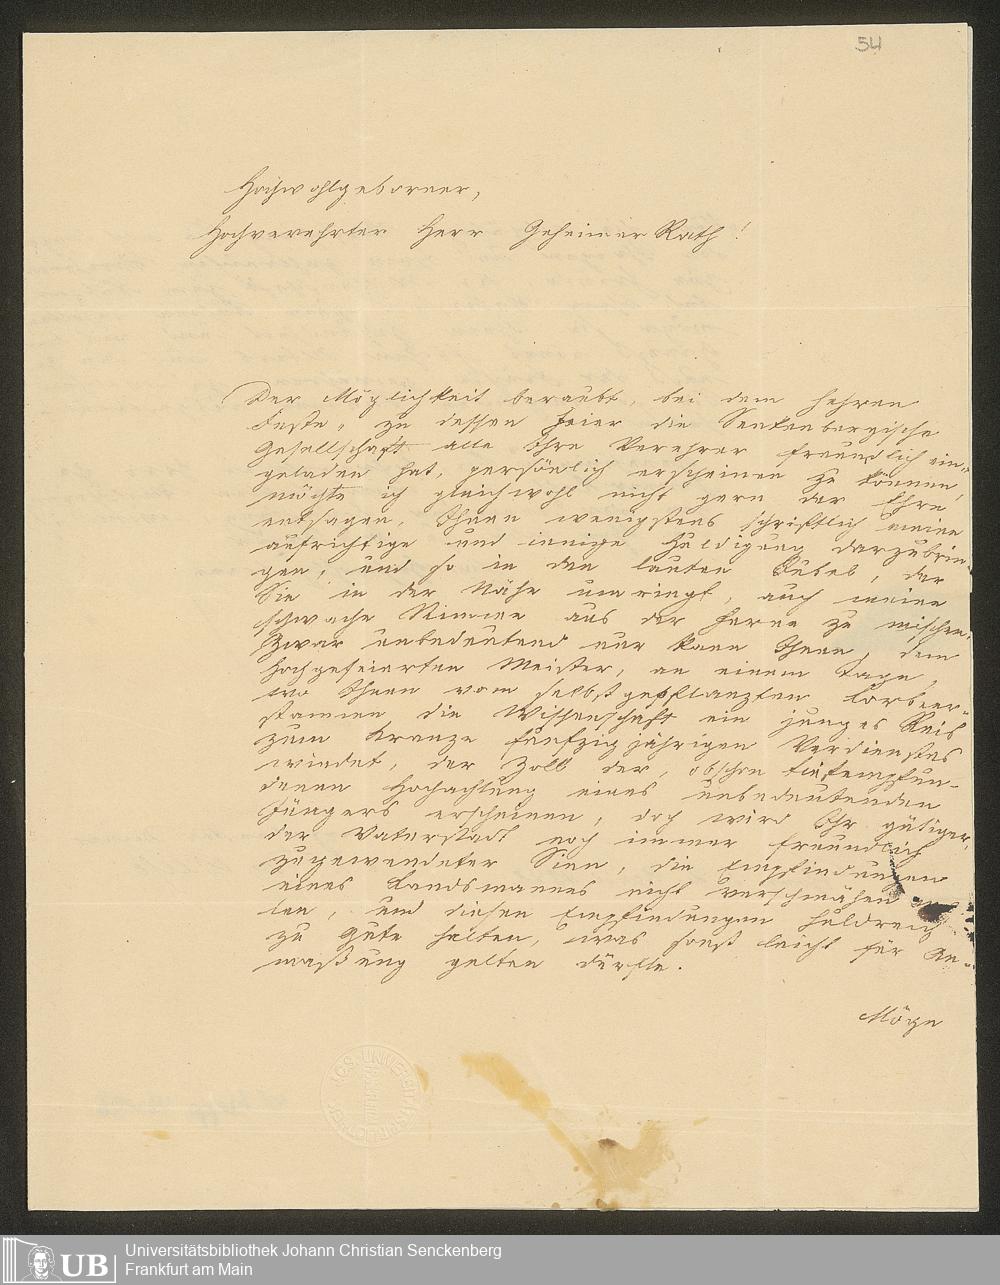 54
Hochwohlgeborner,
Hochverehrter Herr Geheimer Rath!
Der Möglichkeit beraubt, bei dem hehren
Feste, zu dessen Feier die Senkenbergische
Gesellschaft alle Ihre Verehrer freundlich ein-
geladen hat, persönlich erscheinen zu können,
möchte ich gleichwohl nicht gern der Ehre
entsagen, Ihnen wenigstens schriftlich meine
aufrichtige und innige Huldigung darzubrin-
gen, und so in den lauten Jubel, der
Sie in der Nähe umringt, auch meine
schwache Stimme aus der Ferne zu mischen.
Zwar unbedeutend nur kann Ihnen, dem
hochgefeierten Meister, an einem Tage,
wo Ihnen vom selbstgepflanzten Lorbeer-
stamme die Wissenschaft ein junges Reis
zum Kranze fünfzigjährigen Verdienstes
windet, der Zoll der, obschon tiefempfun-
denen Hochachtung eines unbedeutenden
Jüngers erscheinen, doch wird Ihr gütiger,
der Vaterstadt noch immer freundlich
zugewendeter Sinn, die Empfindungen
eines Landsmannes nicht verschmähen
len, und diesen Empfindungen huldreich
zu Gute halten, was sonst leicht für An-
maßung gelten dürfte.
Möge
UB
Universitätsbibliothek Johann Christian Senckenberg
Frankfurt am Main